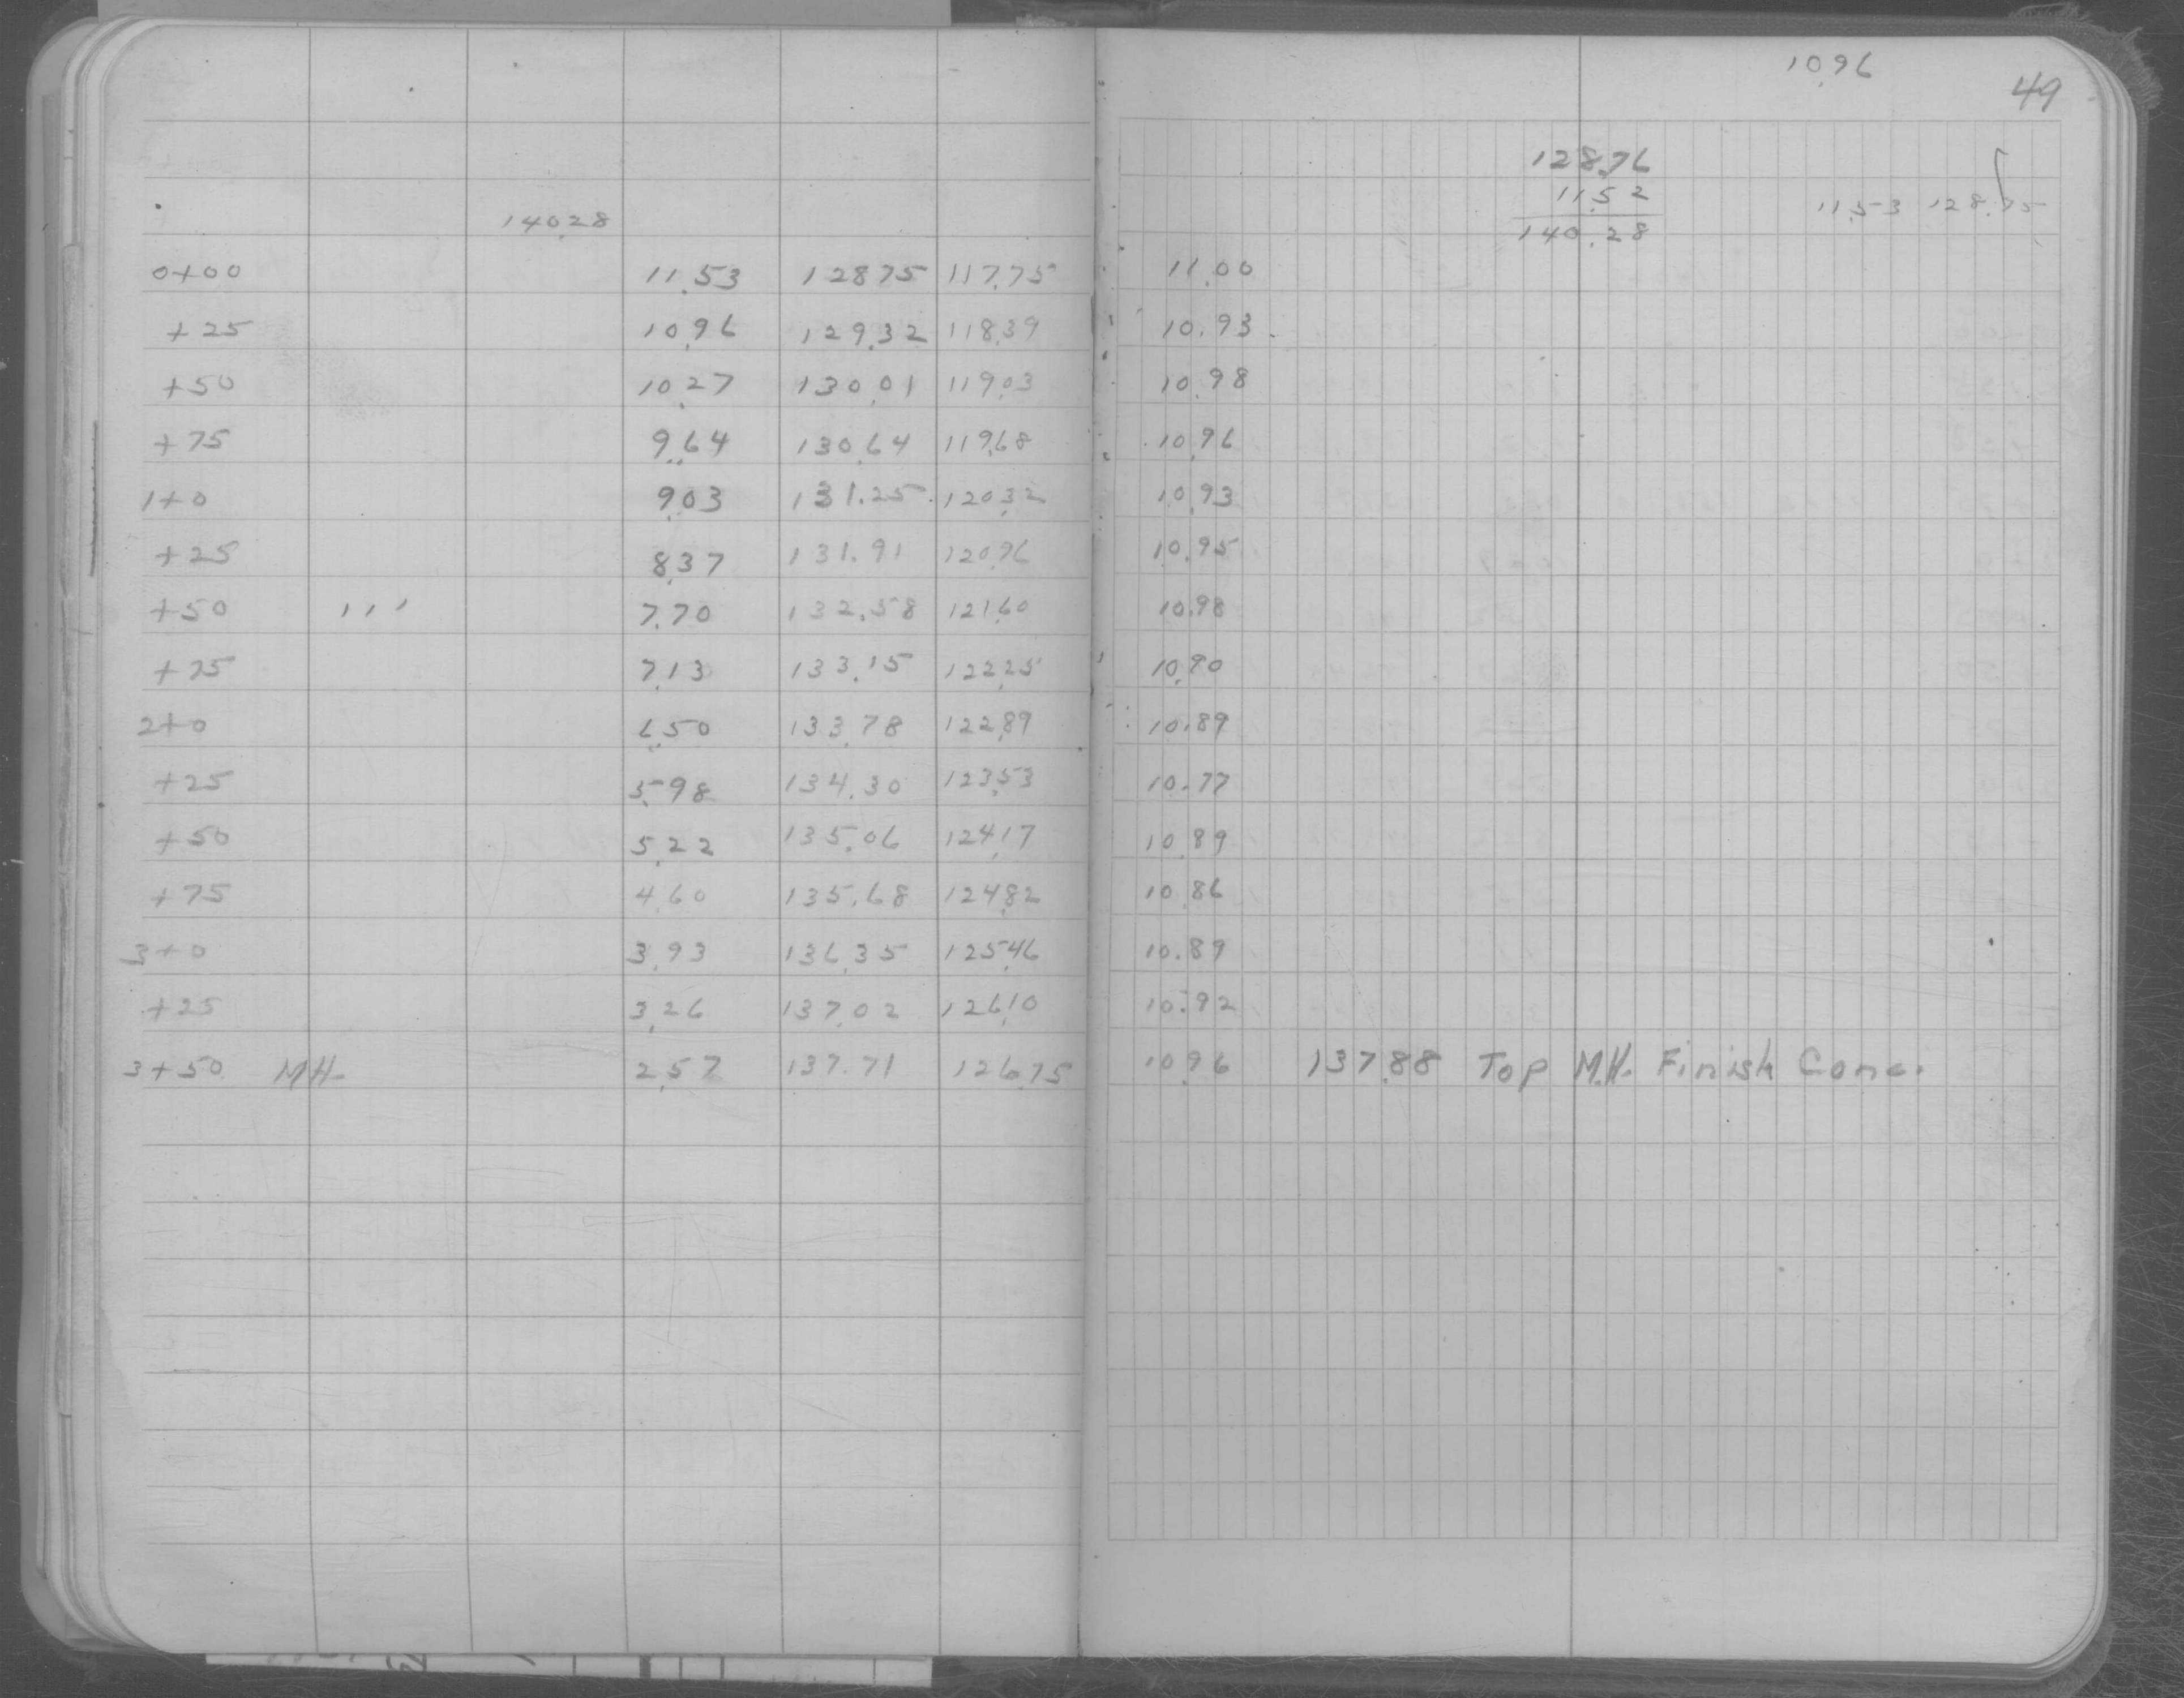 10.96
49
128.76
11.52
11.53 128.75
140.28
140.28
0+00 11.53 128 75 117.75 11.00
+25 10.96 129.32 118.39 10.93
+50 10.27 130.01 119.03 10.98
+75 9.64 130.64 119.68 10.96
1+0 9.03 131.25 120.32 10.93
+25 8.37 131.91 120.96 10.95
+50 ' ' ' 7.70 132.58 121.60 10.98
+75 7.13 133.15 122.25 10.90
2+0 6.50 133.78 122.89 10.89
+25 5.98 134.30 123.53 10.77
+50 5.22 135.06 124.17 10.89
+75 4.60 135.68 124.82 10.86
3+0 3.93 136.35 125.46 10.89
+25 3.26 137.02 126.10 10.92
3+50 MH 2.57 137.71 126.75 10.96 137.88 Top M.H. Finish Conc.